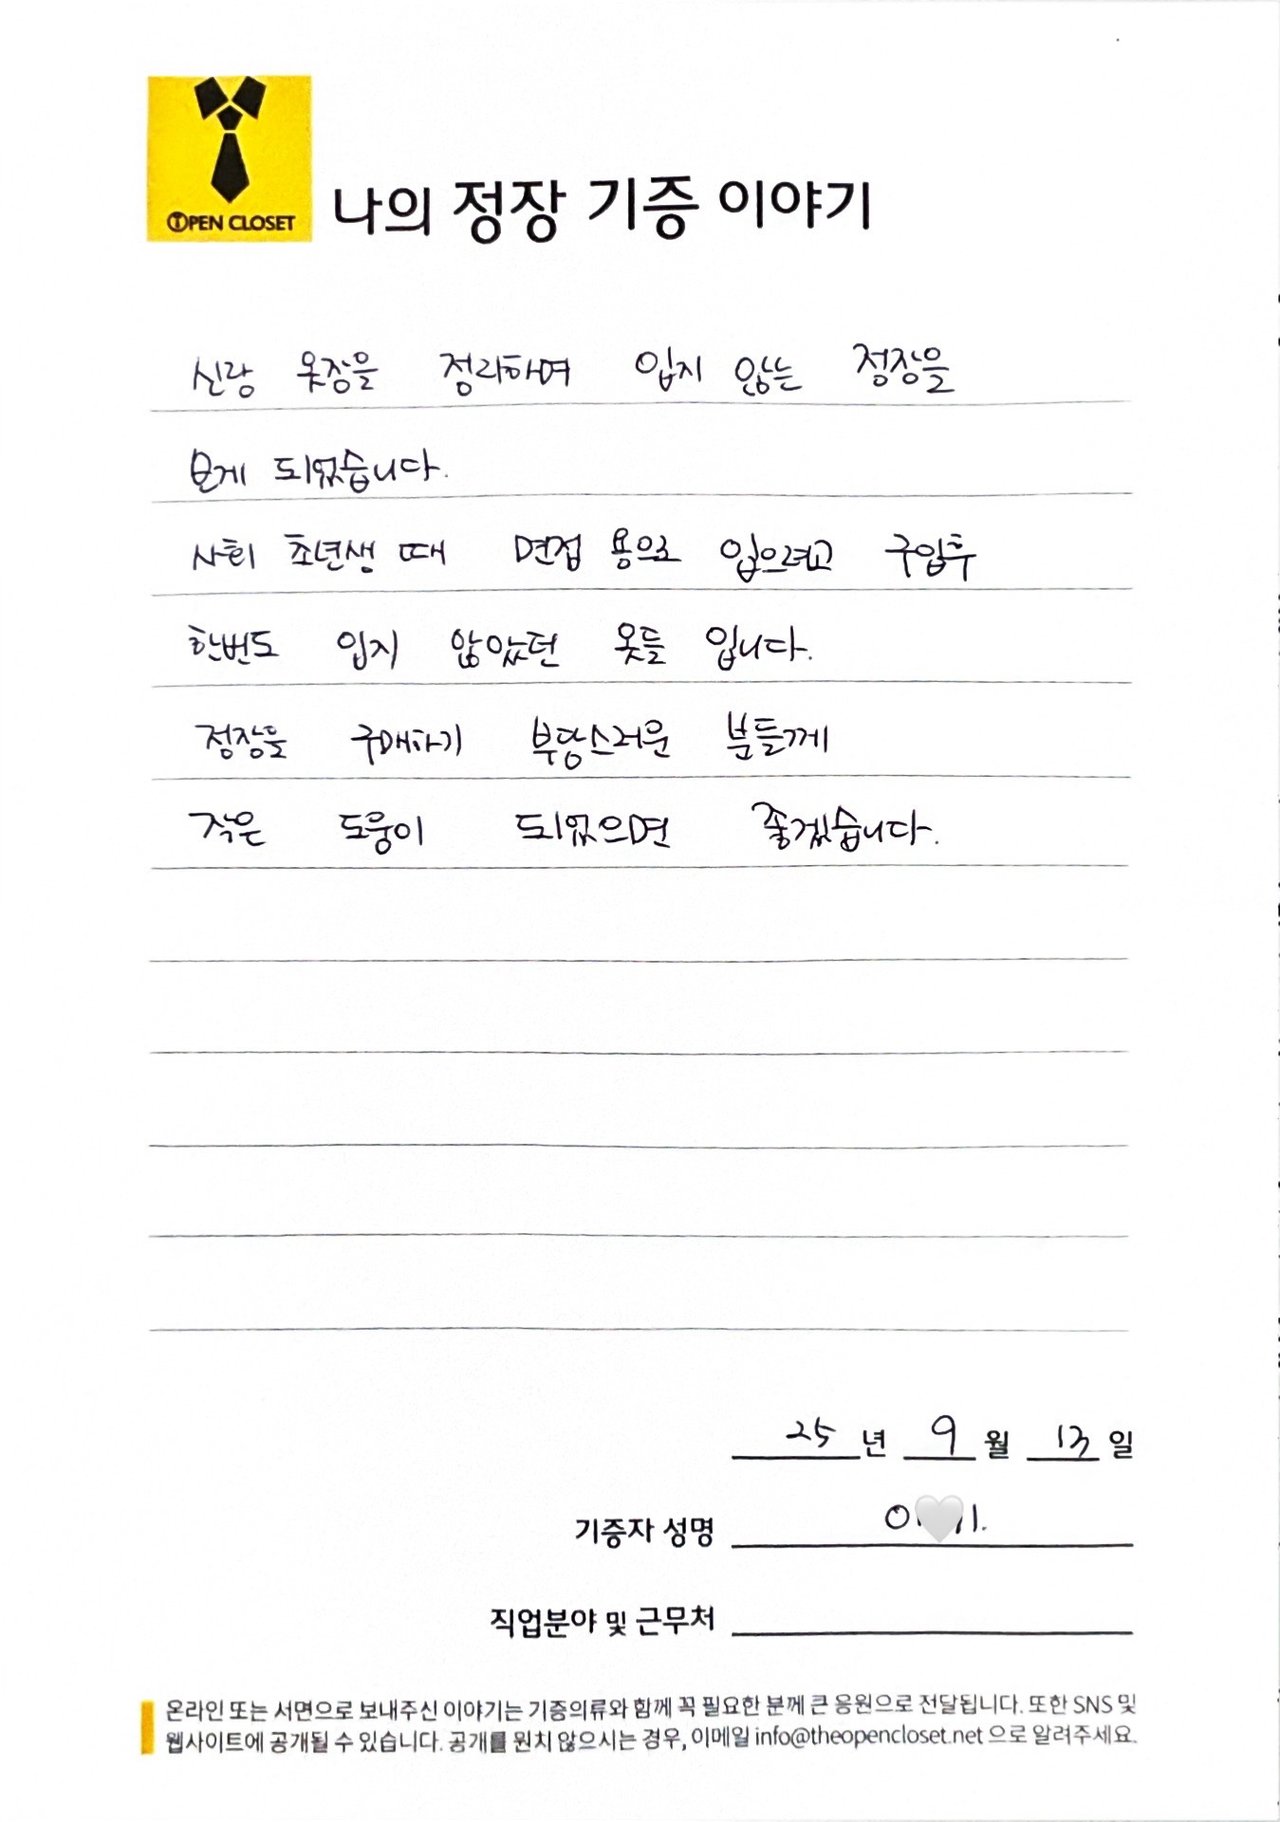 OPEN CLOSET
나의 정장 기증 이야기
신랑 옷장을 정리하며 입지 않는 정장을
보게 되었습니다.
사회 초년생 때 면접 용으로 입으려고 구입후
한번도 입지 않았던 옷들 입니다.
정장을 구매하기 부담스러운 분들께
작은 도움이 되었으면 좋겠습니다.
25 년 9 월 13 일
기증자 성명
직업분야 및 근무처
온라인 또는 서면으로 보내주신 이야기는 기증의류와 함께 꼭 필요한 분께 큰 응원으로 전달됩니다. 또한 SNS 및
웹사이트에 공개될 수 있습니다. 공개를 원치 않으시는 경우, 이메일 info@theopencloset.net 으로 알려주세요.